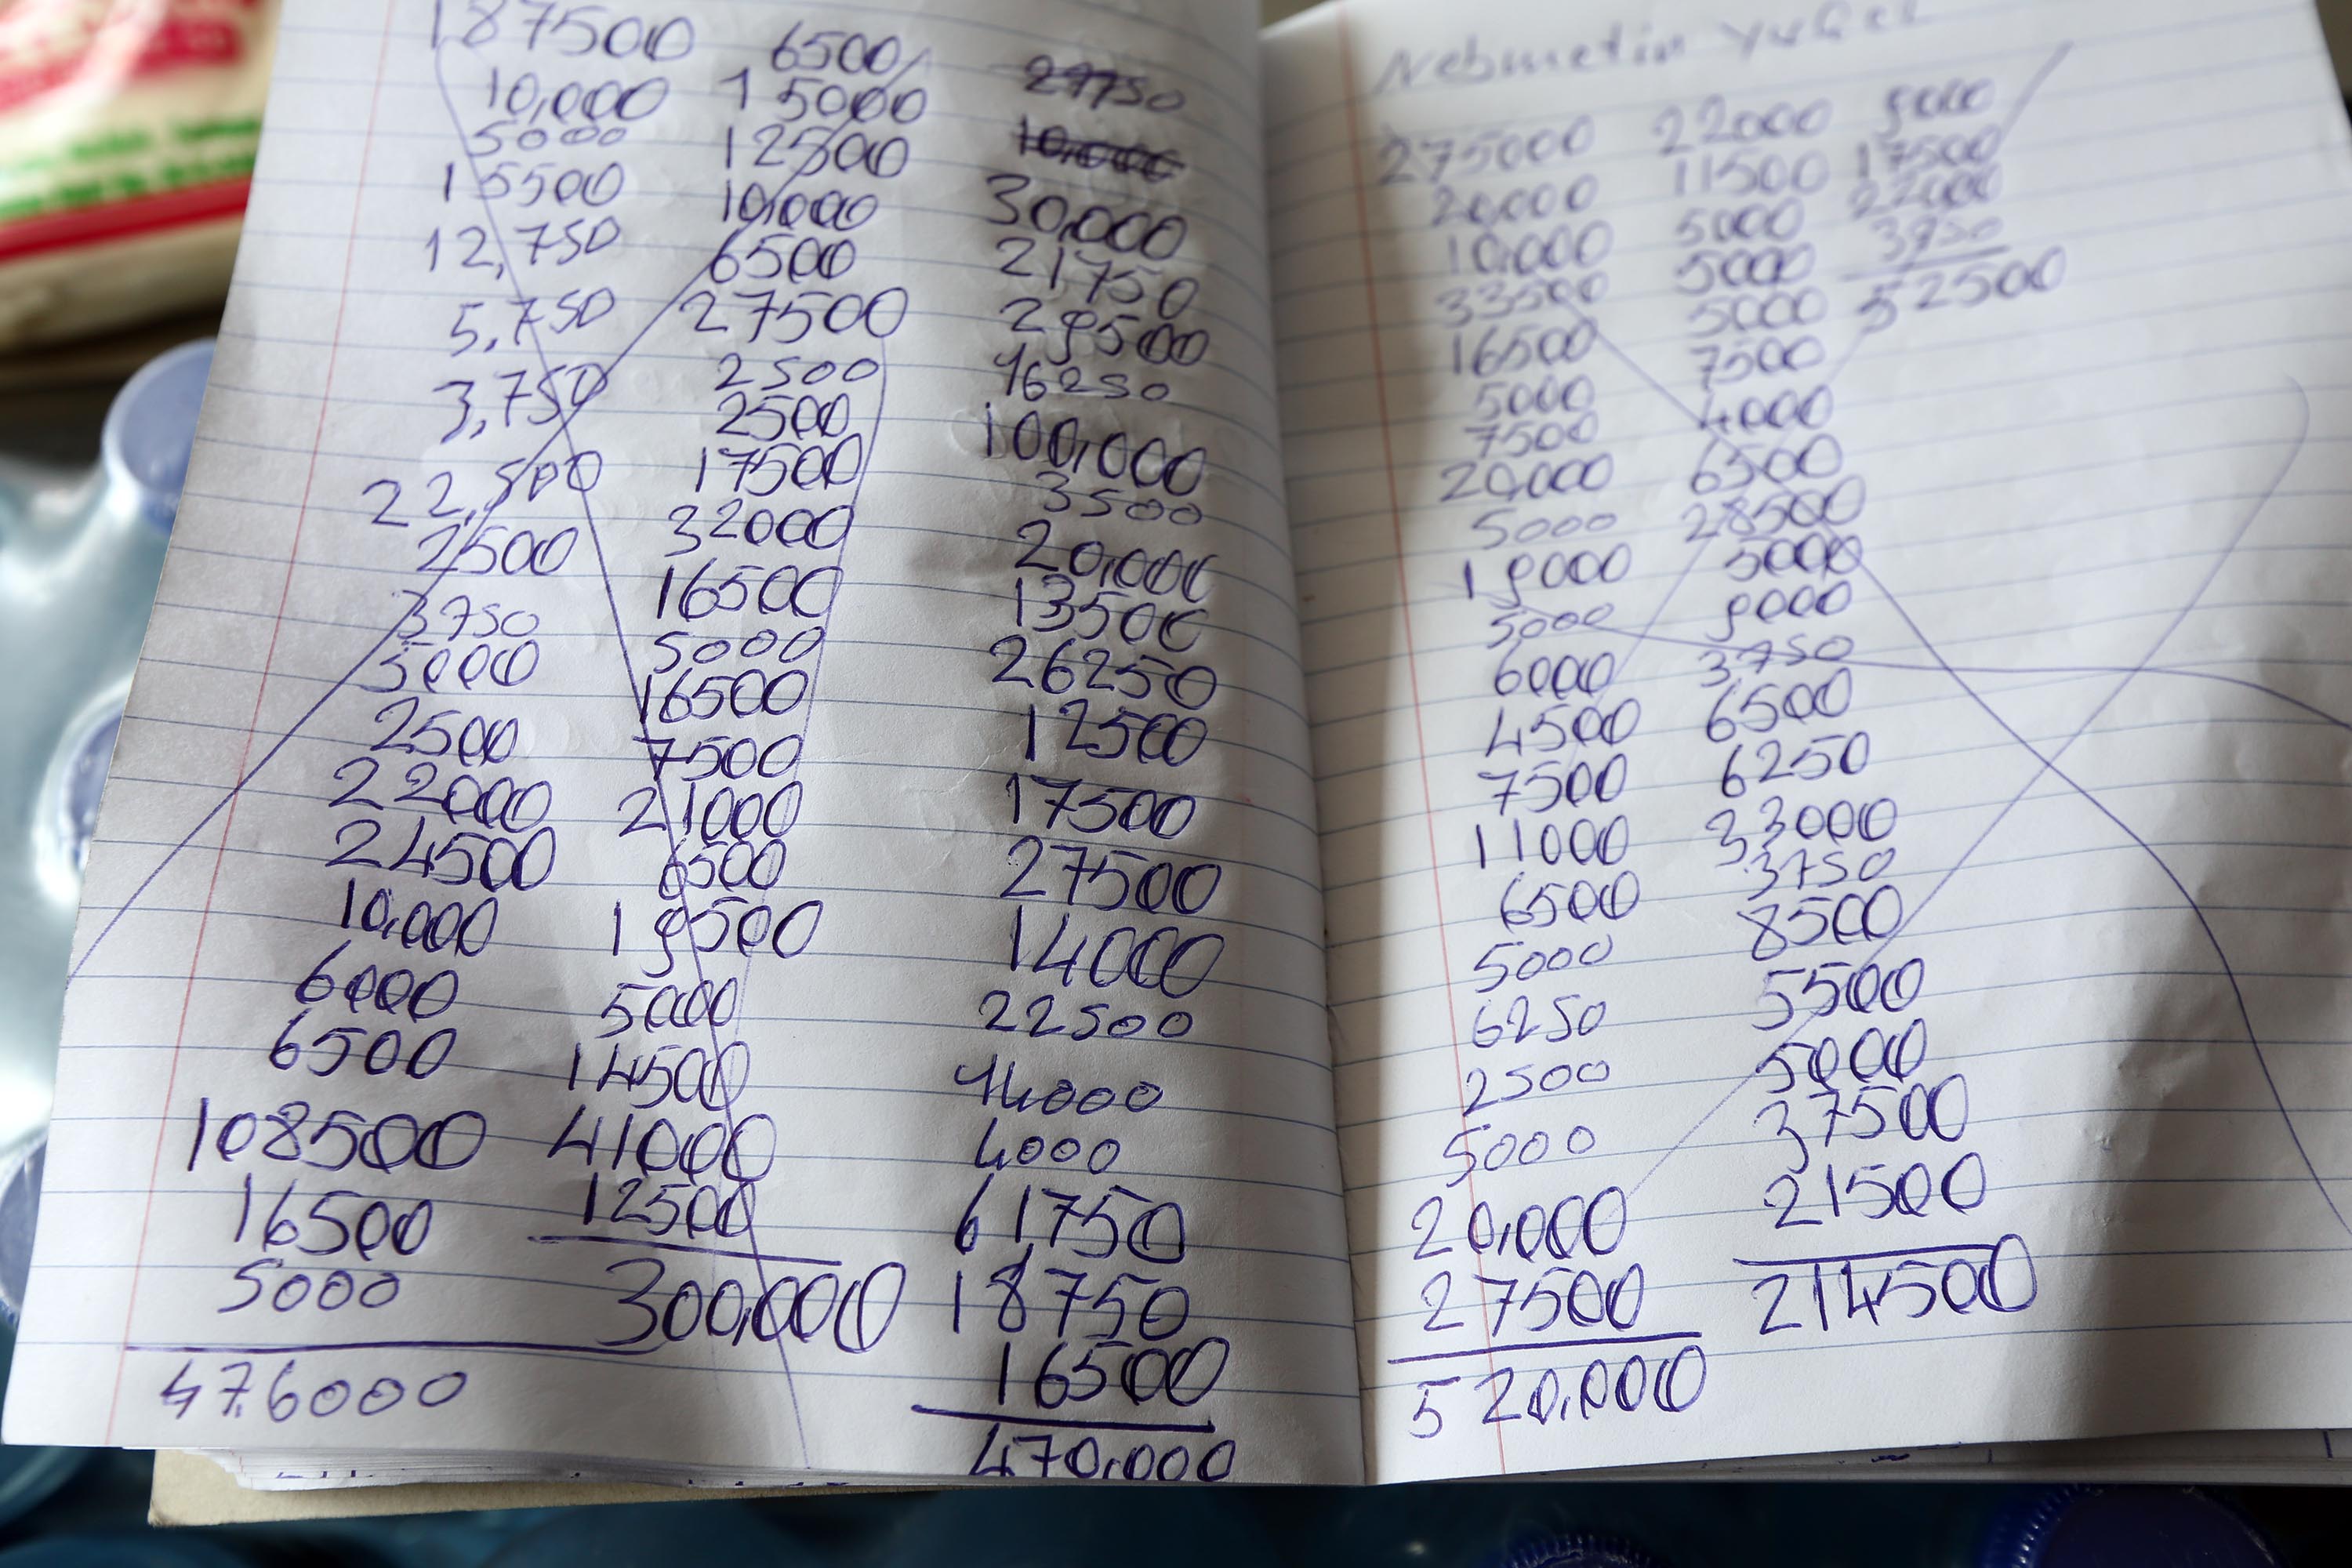 187500
10,000
5000
15500
12,750
5,750
3,750
22,500
2500
3750
5000
2500
22000
24500
10,000
6000
6500
108500
16500
5000
476000
6500
15000
12500
10,000
6500
27500
2500
2500
17500
32000
16500
5000
16500
7500
21000
6500
19500
5000
14500
41000
12500
300,000
27750
10,000
30,000
21750
29500
16250
100,000
3500
20,000
13500
26250
12500
17500
27500
14000
22500
14000
4000
61750
18750
16500
470,000
275000
20,000
10,000
33500
16500
5000
7500
20,000
5000
19000
5000
6000
4500
7500
11000
6500
5000
6250
2500
5000
20,000
27500
520,000
22000
11500
5000
5000
5000
7500
4000
6500
28500
5000
9000
3750
6500
6250
33000
3750
8500
5500
5000
37500
21500
214500
9000
17500
22000
3750
52500